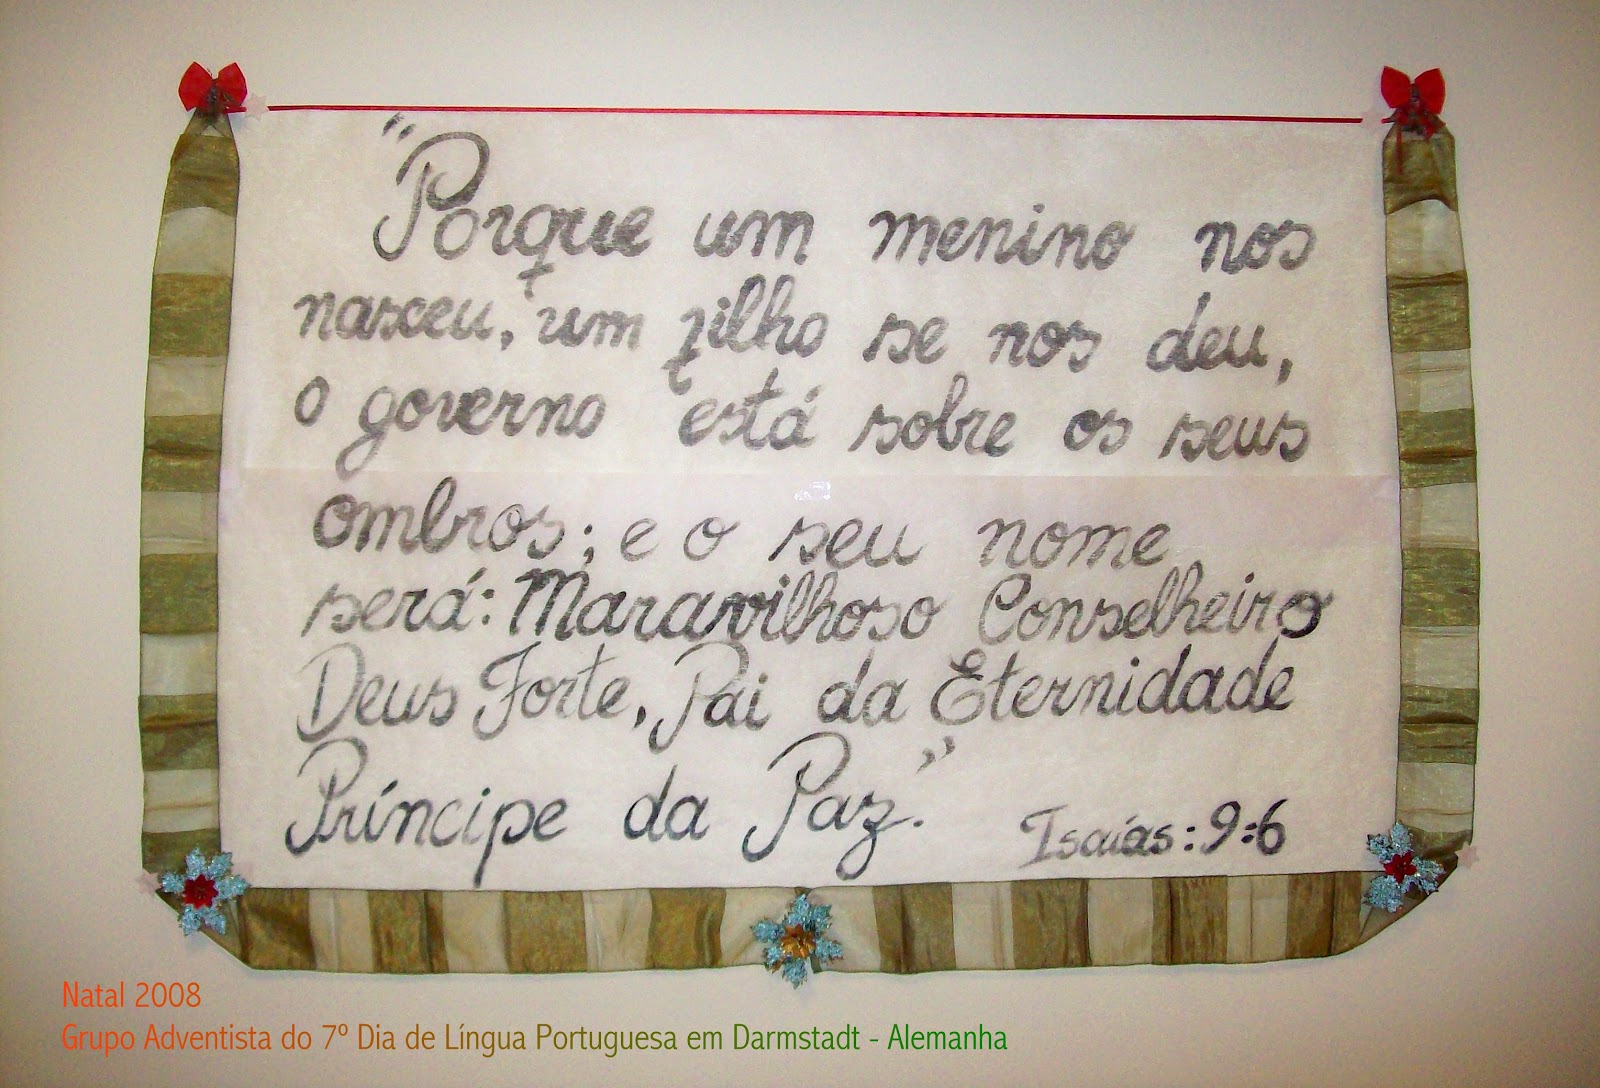 "Porque um menino nos
nasceu, um filho se nos deu,
o governo está sobre os seus
ombros; e o seu nome
será: Maravilhoso Conselheiro
Deus Forte, Pai da Eternidade
Príncipe da Paz."
Isaías: 9:6
Natal 2008
Grupo Adventista do 7º Dia de Língua Portuguesa em Darmstadt - Alemanha